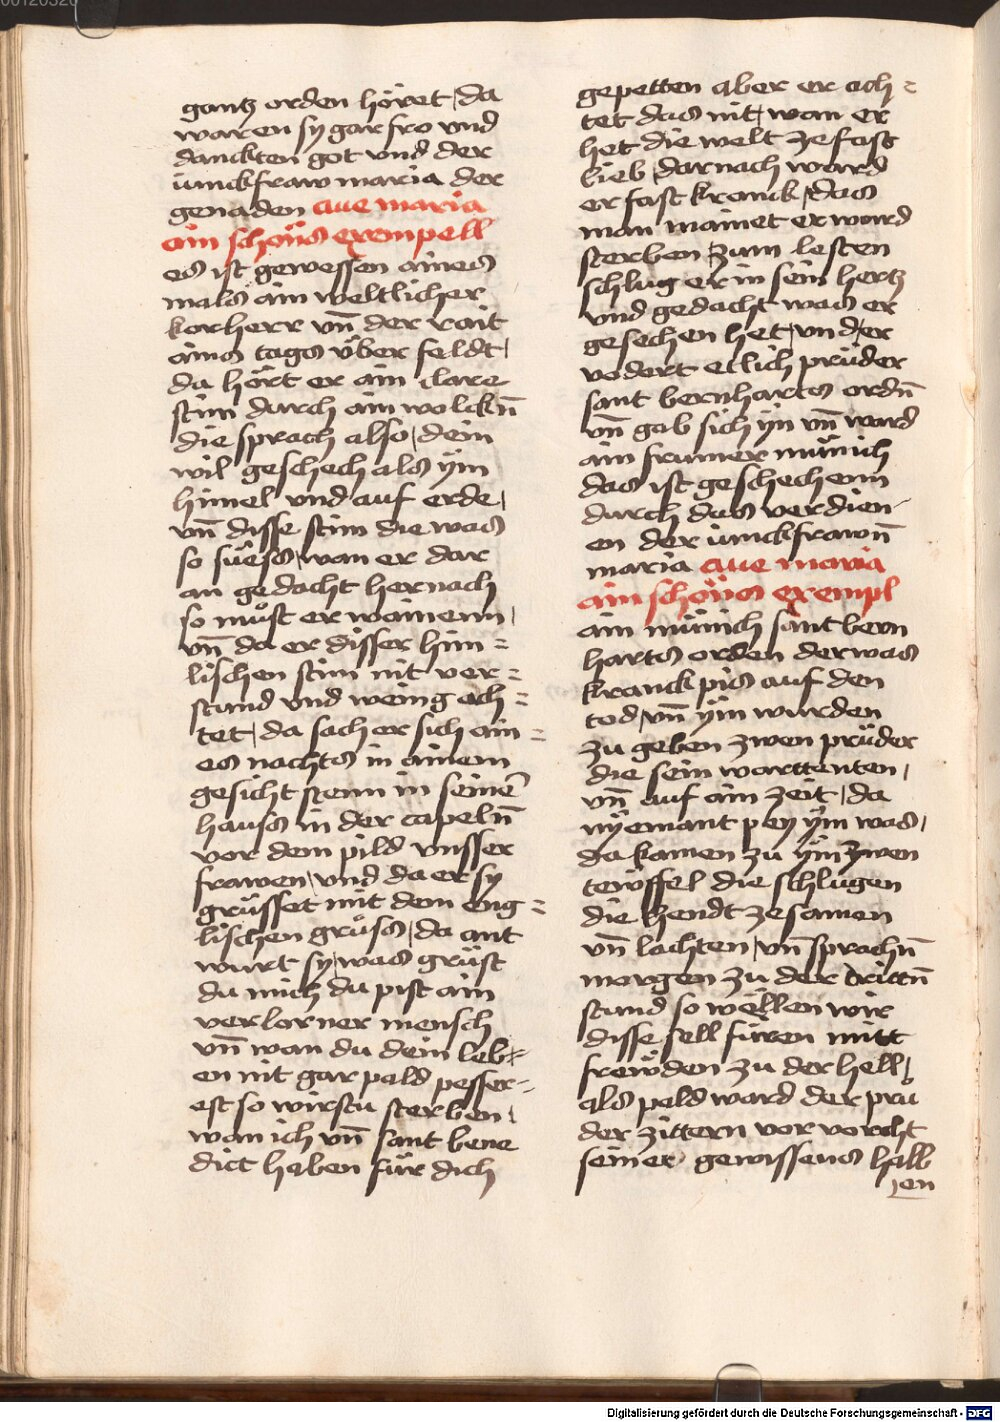 gantz orden höret / da
waren sy gar fro vnd
danckten got vnd der
iunckfraw maria der
genaden aue maria
ain schöns exempell
es ist gewessen aines
mals ain weltlicher
korherr vn̄ der rait
ains tags v̈ber feldt /
da hört er ain clare
stim durch ain wolckn̄
die sprach also / dein
wil geschech als ÿm
himel vnd auf erde /
vn̄ disse stim die was
so süess / wan er dar
an gedacht hernach
so muͦst er wainenn /
vn̄ da er disser him =
lischen stim nit ver =
stund vnd weing ach =
tet / da sach er sich ain =
es nachts in ainem
gesicht stenn in seinē
hauss in der capeln̄
vor dem pild vnsser
frawen / vnd da er sy
grüsset mit dem eng =
lischen gruͦss / da ant
wurt sy / was grüst
du mich du pist ain
verlorner mensch
vn̄ wan du dein leb =
en nit gar pald pesser =
est so wirstu sterben /
wan ich vn̄ sant bene
dict haben für dich
gepetten aber er ach =
tet das nit / wan er
het die welt ze fast
lieb / darnach ward
er fast kranck / das
man mainet er ward
sterben / zum lesten
schlug er in sein hertz
vnd gedacht was er
gesechen het / vnd er
vodert etlich prüder
sant bernhartes ordn̄
vn̄ gab sich ÿn vn̄ ward
ain frumer münich
das ist geschechenn
durch das verdien-
en der iunckfrawn̄
maria aue maria
ain schöns exempl
ain münich sant bern
harts orden der was
kranck pis auf den
tod / vn̄ ÿm wurden
zu geben zwen prüder
die sein warttenten /
vn̄ auf ain zeit / da
nÿemant pey ÿm was /
da kamen zu ÿm zwen
tewffel die schlugen
die hendt ze samen
vn̄ lachten / vn̄ sprachn̄
morgen zu der drittn̄
stund so wellen wir
disse sell füren mitt
frewden zu der hell /
als pald ward der prü
der zittern vor vorcht
seiner gewissens halb
en
Digitalisierung gefördert durch die Deutsche Forschungsgemeinschaft - DFG